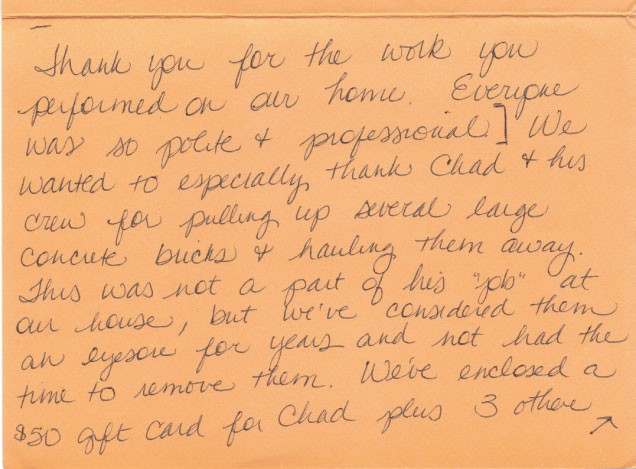 Thank you for the work you
performed on our home. Everyone
was so polite & professional.] We
wanted to especially thank Chad & his
crew for pulling up several large
concrete bricks & hauling them away.
This was not a part of his "job" at
our house, but we've considered them
an eyesore for years and not had the
time to remove them. We've enclosed a
$50 gift card for Chad plus 3 others